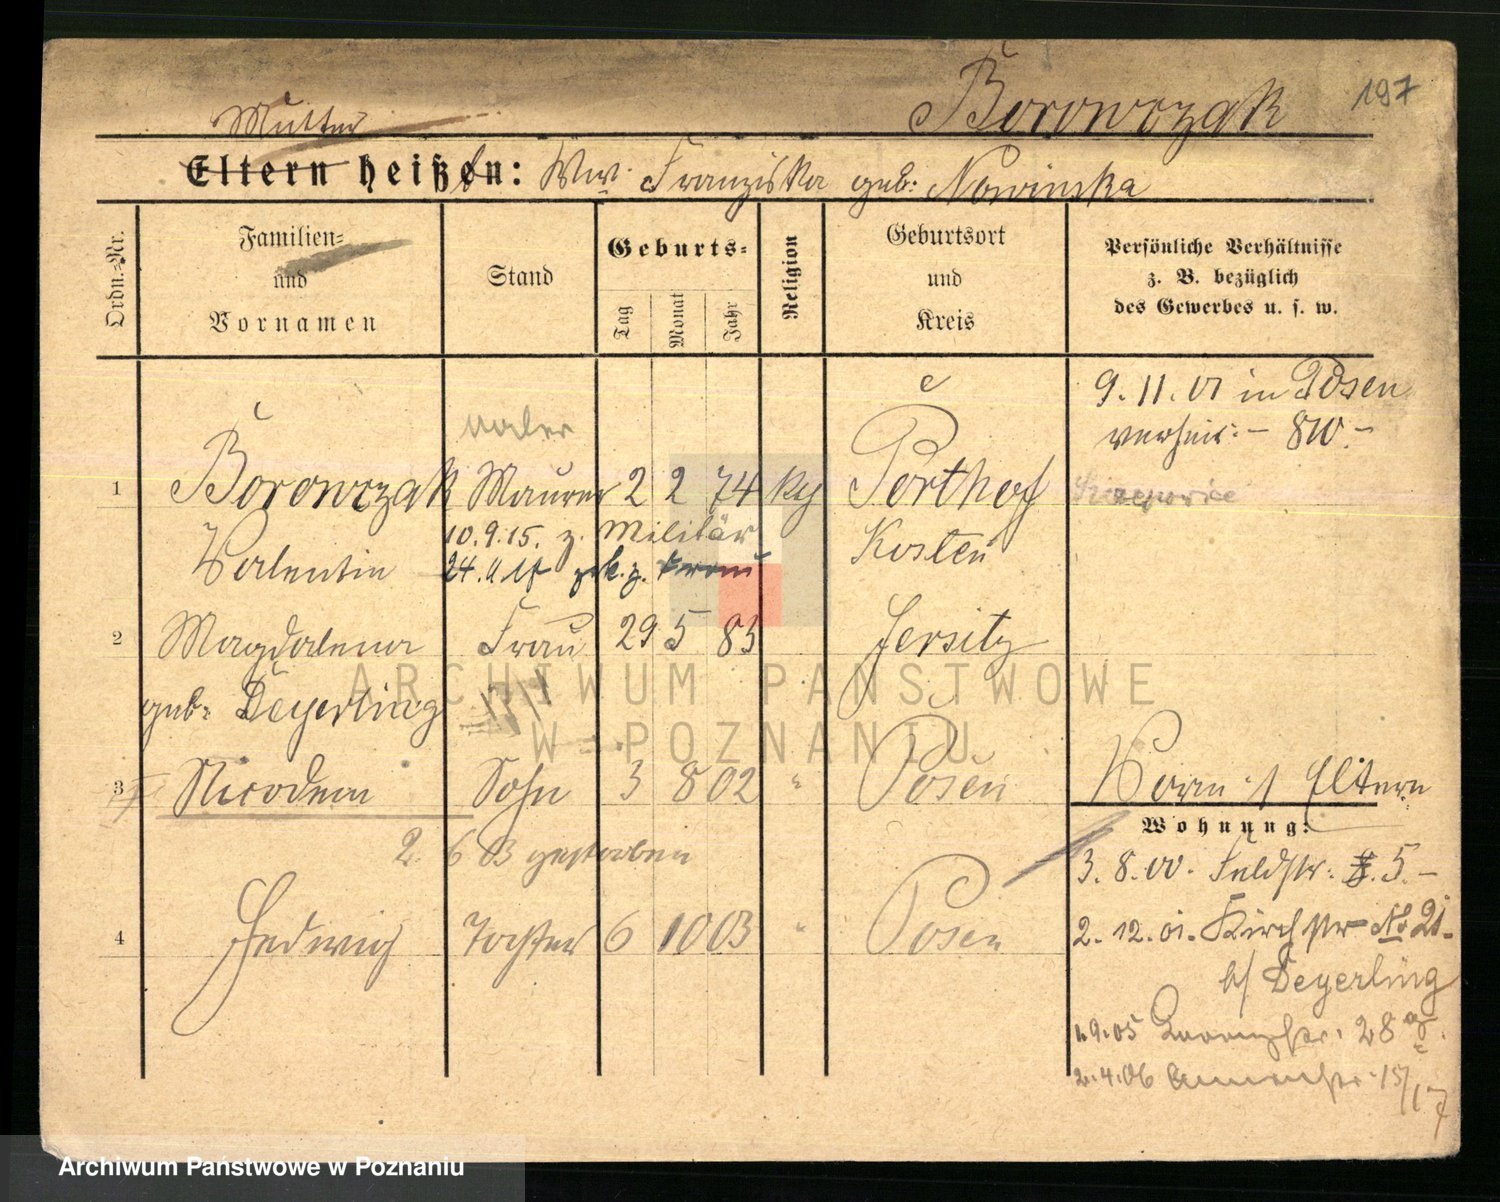 Borowczak 197
Mutter
Eltern heißen: Ww. Franziska geb: Nowinska
Ordn.-Nr.
Familien=
und
Vornamen
Stand
Geburts=
Tag
Monat
Jahr
Religion
Geburtsort
und
Kreis
Persönliche Verhältnisse
z. B. bezüglich
des Gewerbes u. s. w.
9. 11. 01 in Posen
verheir: – 810 –
1 Borowczak Maurer 2 2 74 kth
Valentin
10.9.15. z. Militär
24.
Kosten
2 Magdalena Frau 29 5 83 Jersitz
geb: Deyerling
3 Nicodem Sohn 3 8 02 " Posen
2. 6 03 gestorben
4 Hedwig Tochter 6 10 03 " Posen
Vorm: / Eltern
Wohnung:
3. 8. 00. Feldstr: 5. –
2. 12. 01. Kirchstr No 21.
b/ Deyerling
1.9.05 28
2.4.06 15/17
ARCHIWUM PAŃSTWOWE
W POZNANIU
Archiwum Państwowe w Poznaniu